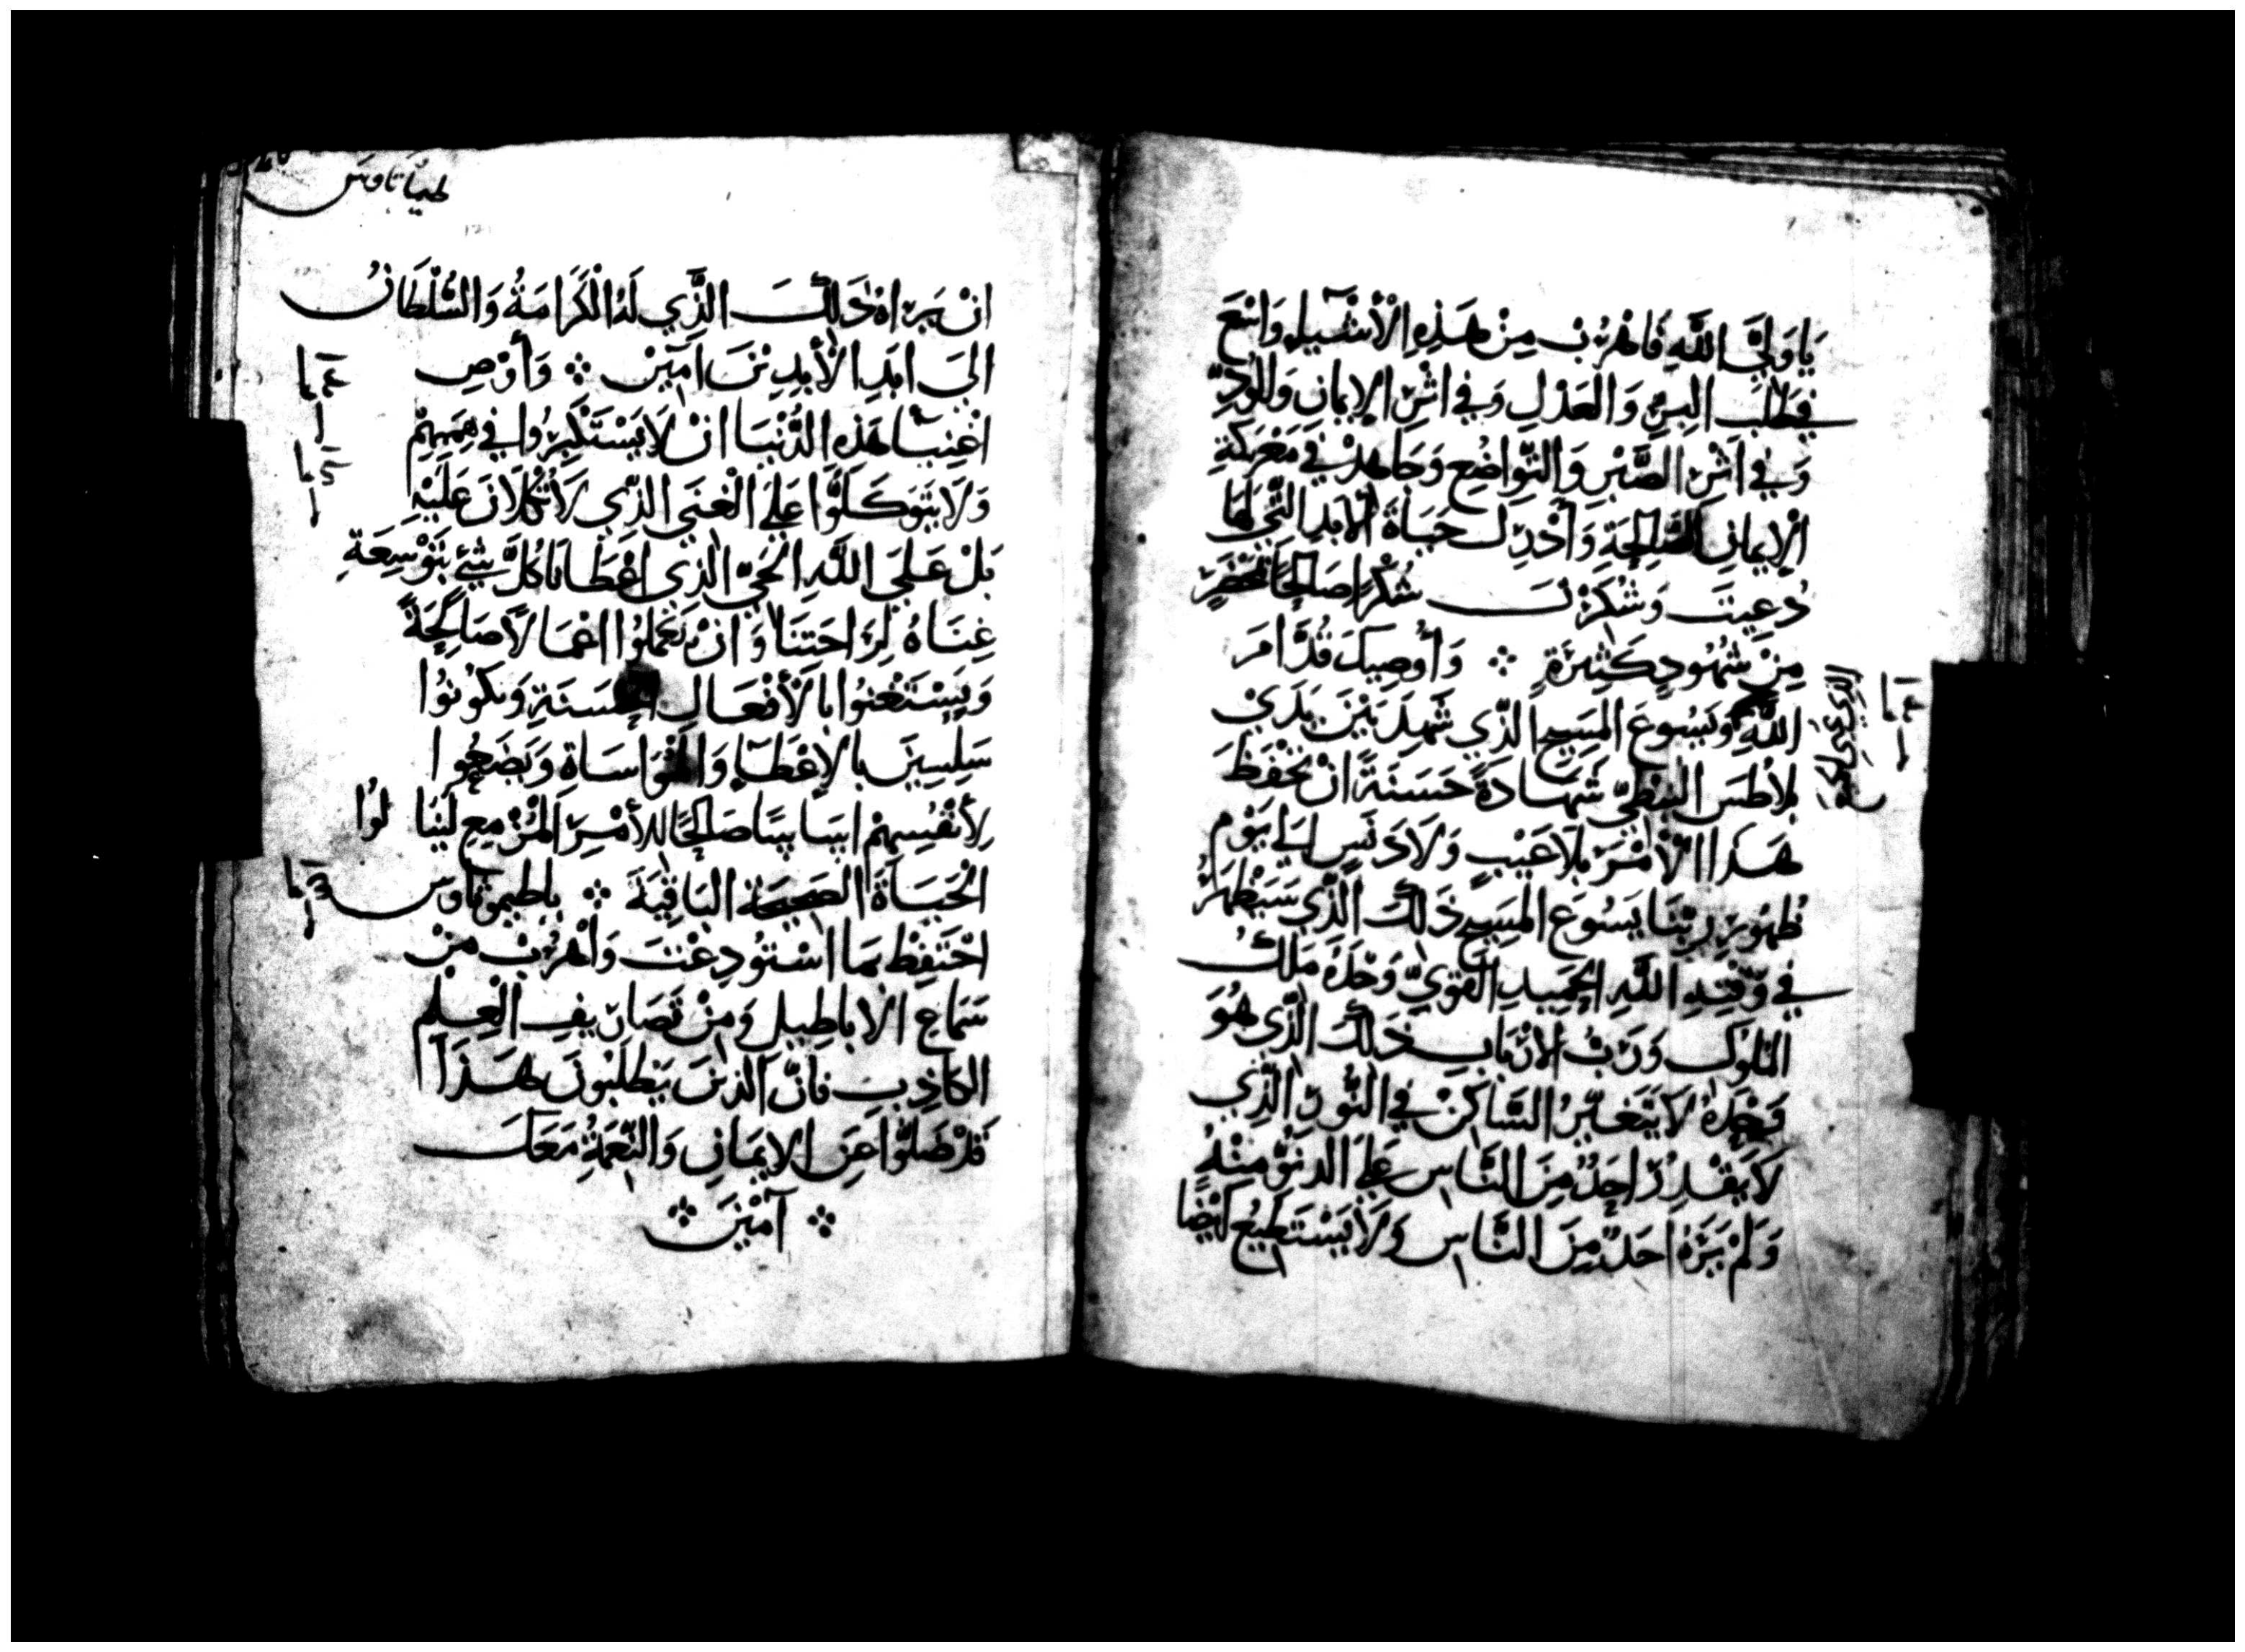 يَا وَلِيَّ اللَّهِ فَاهْرُبْ مِنْ هَذِهِ الْأَشْيَاءِ وَاسْعَ
فِي طَلَبِ البِرِّ وَالعَدْلِ وَفِي اثَرِ الإيمَانِ وَالوُدِّ
وَفِي اثَرِ الصَّبْرِ وَالتَّوَاضُعِ وَجَاهِدْ فِي مَعْرَكَةِ
الْإيمَانِ الصَّالِحَةِ وَأَدْرِك حَيَاةَ الْأَبَدِ الَّتِي لَهَا
دُعِيتَ وَشَكَرْتَ شُكْرًا صَالِحًا بِمَحْضَرٍ
مِنْ شُهُودٍ كَثِيرَةٍ ⁘ وَأُوصِيكَ قُدَّامَ
اللَّهِ وَيَسُوعَ المَسِيحِ الَّذِي شَهِدَ بَيْنَ يَدَيْ
بِلَاطُسَ النبطِيِّ شَهَادَةً حَسَنَةً انْ تَحْفَظَ
هَذَا الْأَمْرَ بِلَا عَيْبٍ وَلَا دَنَسٍ الَى يَوْمِ
ظُهُورِ رَبِّنَا يَسُوعَ المَسِيحِ ذَلِكَ الَّذِي سَيُظْهِرُهُ
فِي وَقْتِهِ اللَّهِ الحَمِيدِ القَوِيِّ وَحْدَهُ مَلِكُ
المُلُوكِ وَرَبُّ الارْبَابِ ذَلِكَ الَّذِي هُوَ
وَحْدَهُ لَا يَتَغَيَّرُ السَّاكِنُ فِي النُّورِ الَّذِي
لَا يَقْدِرُ احَدٌ مِنَ النَّاسِ عَلَى الدنُوِّ مِنْهُ
وَلَمْ يَرَهُ احَدٌ مِنَ النَّاسِ وَلَا يَسْتَطِيعُ ايْضًا
طيماتاوس
انْ يَرَاهُ ذَلِكَ الَّذِي لَهُ الْكَرَامَةُ وَالسُّلْطَانُ
الَى ابَدِ الْأَبِدِينَ امِيْنَ ⁘ وَأَوْصِ
اغْنِيَا هَذِهِ الدُّنْيَا انْ لَا يَسْتَكْبِرُوا فِي هِمَمِهِمْ
وَلَا يَتَوَكَّلُوا عَلَى الْغِنَى الَّذِي لَا تُكْلَانَ عَلَيْهِ
بَلْ عَلَى اللَّهِ الحَيِّ الَّذِي اعْطَانَا كُلَّ شَيْءٍ بِتَوْسِعَةِ
غِنَاهُ لِرَاحَتِنَا وَانْ يَعْمَلُوا اعْمَالًا صَالِحَةً
وَيَسْتَغْنُوا بِالْأَفْعَالِ الحَسَنَةِ وَيَكُونُوا
سَلِسِينَ بِالإعْطَاءِ وَالمُوَاسَاةِ وَيَضَعُوا
لِأَنْفُسِهِمْ اسَاسًا صَالِحًا لِلأَمْرِ المُزْمِعِ لِيَنَالُوا
الْحَيَاةَ الصَحِيحَة البَاقِيَةَ ⁘ ياطيموتاوس
احْتَفِظْ بِمَا اسْتُودِعْتَ وَاهْرُبْ مِنْ
سَمَاعِ الابَاطِيلِ وَمِنْ تَصَارِيفِ العِلْمِ
الكاذِبِ فَانَّ الَّذِينَ يَطْلُبُونَ هَذَا
قَدْ ضَلُّوا عَنِ الايمَانِ وَالنِّعْمَةُ مَعَكَ
⁘ آمِيْنَ ⁘